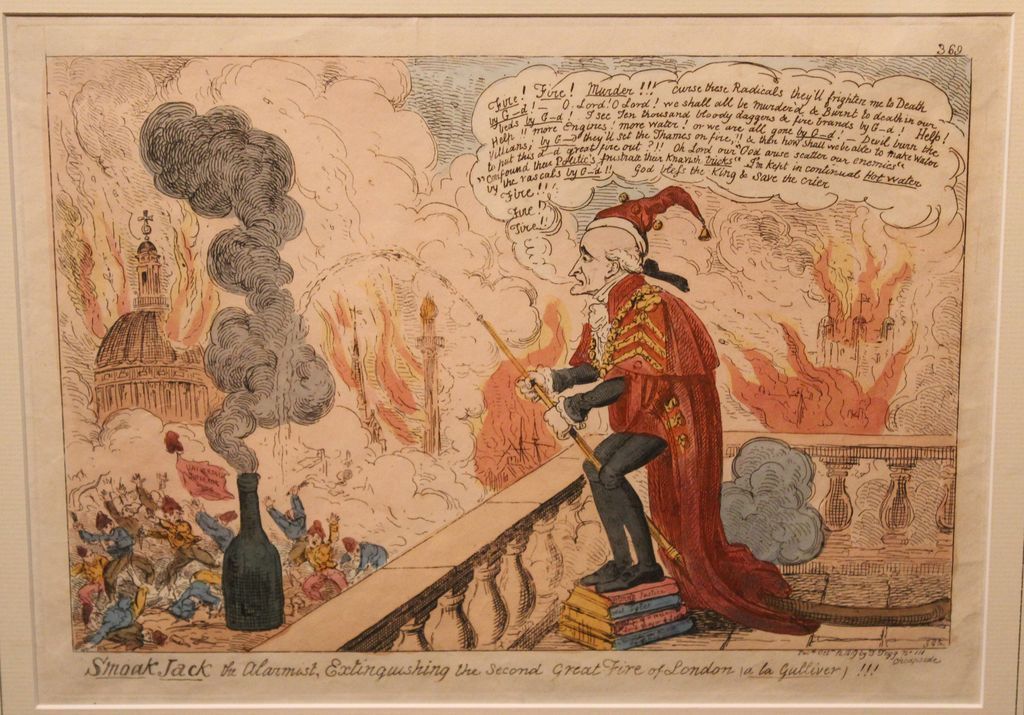 369
Fire! Fire! Murder!!! Curse these Radicals they'll frighten me to Death
by G-d! — O. Lord! O Lord! we shall all be Murder'd & Burnt to death in our
beds by G-d! I see Ten thousand bloody daggers & fire brands by G-d! Help!
Help!! more Engines! more water! or we are all gone by G-d! — Devil burn the
Villians, by G-d they'll set the Thames on fire,!! & then how shall we be able to make water
to put this d-d great fire out?!! Oh Lord our "God arise scatter our enemies"
"Confound their Politic's frustrate their Knavish tricks" I'm kept in continual Hot water
by the rascals by G-d!! God bless the King & Save the crier
Fire!!!
Fire!
Fire!!
UNIVERSAL
SUFFERAGE
Smoak Jack the Alarmist, Extinguishing the Second Great Fire of London (a la Gulliver) !!!
Cheapside